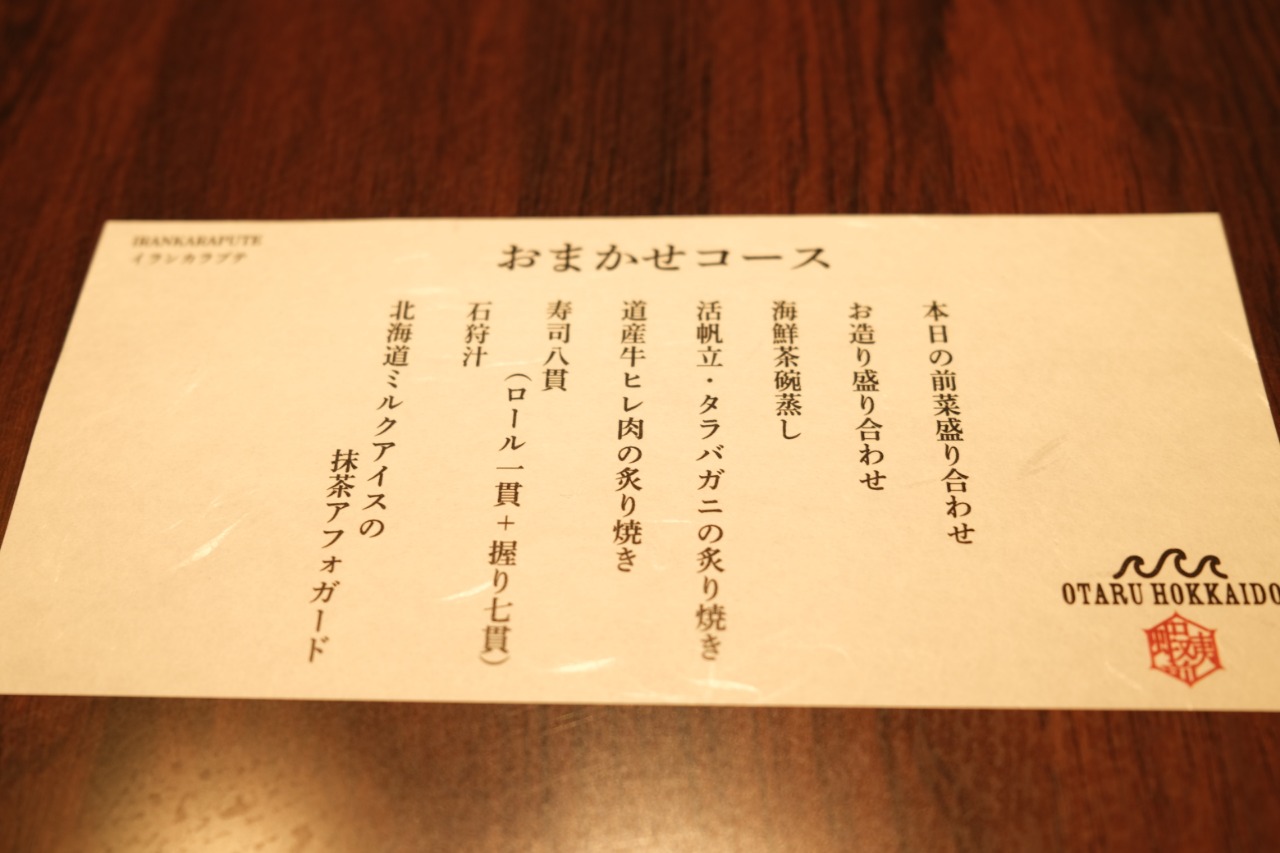 IRANKARAPUTE
イランカラプテ
おまかせコース
本日の前菜盛り合わせ
お造り盛り合わせ
海鮮茶碗蒸し
活帆立・タラバガニの炙り焼き
道産牛ヒレ肉の炙り焼き
寿司八貫
（ロール一貫＋握り七貫）
石狩汁
北海道ミルクアイスの
抹茶アフォガード
OTARU HOKKAIDO